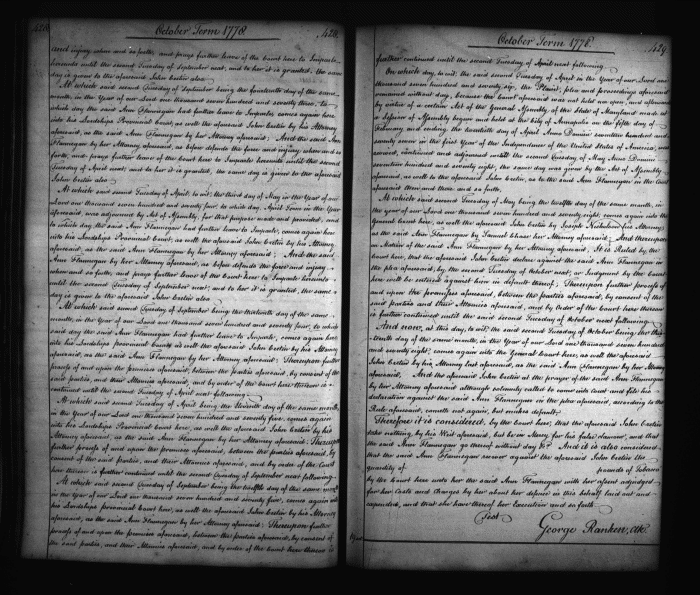 428
October Term 1778.
428.
and injury when and so forth, and prays further leave of the court here to Imparle
hereunto until the second Tuesday of September next, and to her it is granted, the same
day is given to the aforesaid John also
At which said second Tuesday of September being the fourteenth day of the same
month, in the Year of our Lord one thousand seven hundred and seventy three, to
which day the said Ann Flannegan had further leave to Imparle, comes again here
into his Lordships Provincial Court, as well the aforesaid John by his Attorney
aforesaid, as the said Ann Flannegan by her Attorney aforesaid; And the said Ann
Flannegan by her Attorney aforesaid, as before defends the force and injury when and so
forth, and prays further leave of the court here to Imparle hereunto until the second
Tuesday of April next, and to her it is granted, the same day is given to the aforesaid
John also
At which said second Tuesday of April, to wit, the third day of May in the Year of our
Lord one thousand seven hundred and seventy four, to which day, April Term in the Year
aforesaid, was adjourned by Act of Assembly, for that purpose made and provided, and
to which day the said Ann Flannegan had further leave to Imparle, comes again here
into his Lordships Provincial Court, as well the aforesaid John by his Attorney
aforesaid, as the said Ann Flannegan by her Attorney aforesaid; And the said
Ann Flannegan by her Attorney aforesaid, as before defends the force and injury
when and so forth, and prays further leave of the court here to Imparle hereunto
until the second Tuesday of September next, and to her it is granted, the same
day is given to the aforesaid John also
At which said second Tuesday of September being the thirteenth day of the same
month, in the Year of our Lord one thousand seven hundred and seventy four, to which
said day the said Ann Flannegan had further leave to Imparle, comes again here
into his Lordships Provincial Court as well the aforesaid John by his Attorney
aforesaid, as the said Ann Flannegan by her Attorney aforesaid: Thereupon further
process of and upon the premises aforesaid, between the parties aforesaid, by consent of the
said parties, and their Attornies aforesaid, and by order of the court here thereon is
continued until the second Tuesday of April next following
At which said second Tuesday of April being the Eleventh day of the same month,
in the Year of our Lord one thousand seven hundred and seventy five, comes again
into his Lordships Provincial Court here, as well the aforesaid John by his
Attorney aforesaid, as the said Ann Flannegan by her Attorney aforesaid: Thereupon
further process of and upon the premises aforesaid, between the parties aforesaid, by
consent of the said parties, and their Attornies aforesaid, and by order of the Court
here thereon is further continued until the second Tuesday of September next following
At which said second Tuesday of September being the twelfth day of the same month
in the Year of our Lord one thousand seven hundred and seventy five, comes again into
his Lordships provincial court here, as well the aforesaid John by his Attorney
aforesaid, as the said Ann Flannegan by her Attorney aforesaid: Thereupon further
process of and upon the premises aforesaid, between the parties aforesaid, by consent of
the said parties, and their Attornies aforesaid, and by order of the court here thereon is
October Term 1778.
429
further continued until the second Tuesday of April next following.
On which day, to wit, the said second Tuesday of April in the Year of our Lord one
thousand seven hundred and seventy six, the Plaint, plea and proceedings aforesaid
remained without day, because the Court aforesaid was not held nor open, and afterward
by virtue of a certain Act of the General Assembly of the State of Maryland made at
a Session of Assembly begun and held at the City of Annapolis on the fifth day of
February and ending the twentieth day of April Anno Domini seventeen hundred and
seventy seven in the first Year of the Independence of the United States of America, was
revived, continued and adjourned until the second Tuesday of May Anno Domini
seventeen hundred and seventy eight, the same day was given by the Act of Assembly
aforesaid, as well to the aforesaid John, as to the said Ann Flannegan in the Court
aforesaid then and there and so forth,
At which said second Tuesday of May being the twelfth day of the same month, in
the year of our Lord one thousand seven hundred and seventy eight, comes again into the
General Court here, as well the aforesaid John by Joseph Nicholson his Attorney
as the said Ann Flannegan by Samuel Chase her Attorney aforesaid; And thereupon
on Motion of the said Ann Flannegan by her Attorney aforesaid, It is Ruled by the
court here, that the aforesaid John declare against the said Ann Flannegan in
the plea aforesaid, by the second Tuesday of October next, or Judgment by the Court
here will be entered against him in default thereof; Thereupon further process of
and upon the premises aforesaid, between the parties aforesaid, by consent of the
said parties and their Attornies aforesaid, and by Order of the court here thereon
is further continued until the second Tuesday of October next following.
And now, at this day, to wit, the said second Tuesday of October being the thir-
teenth day of the same month, in the Year of our Lord one thousand seven hundred
and seventy eight, comes again into the General Court here, as well the aforesaid
John by his Attorney last aforesaid, as the said Ann Flannegan by her Attorney
aforesaid. And the aforesaid John at the prayer of the said Ann Flannegan
by her Attorney aforesaid although solemnly called to come into Court and file his
declaration against the said Ann Flannegan in the plea aforesaid, according to the
Rule aforesaid, cometh not again, but makes default.
Therefore it is considered, by the court here, that the aforesaid John
take nothing by his Writ aforesaid, but be in Mercy for his false clamour, and that
the said Ann Flannegan go thereof without day &c. And it is also considered
that the said Ann Flannegan recover against the aforesaid John the
quantity of pounds of Tobacco
by the Court here unto the said Ann Flannegan with her assent adjudged
for her Costs and Charges by her about her defence in this behalf laid out and
expended, and that she have thereof her Execution and so forth
Test.
George Ranken, Clk.